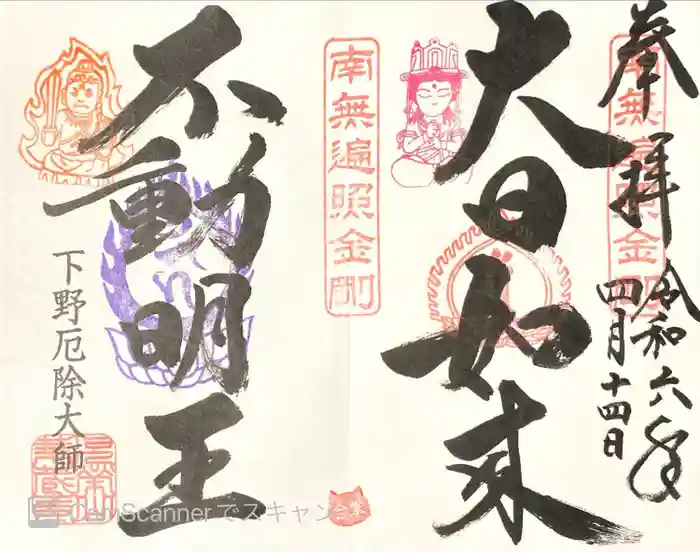 奉拝
令和六年
四月十四日
大日如来
南無遍照金剛
南無遍照金剛
不動明王
下野厄除大師
CamScannerでスキャン